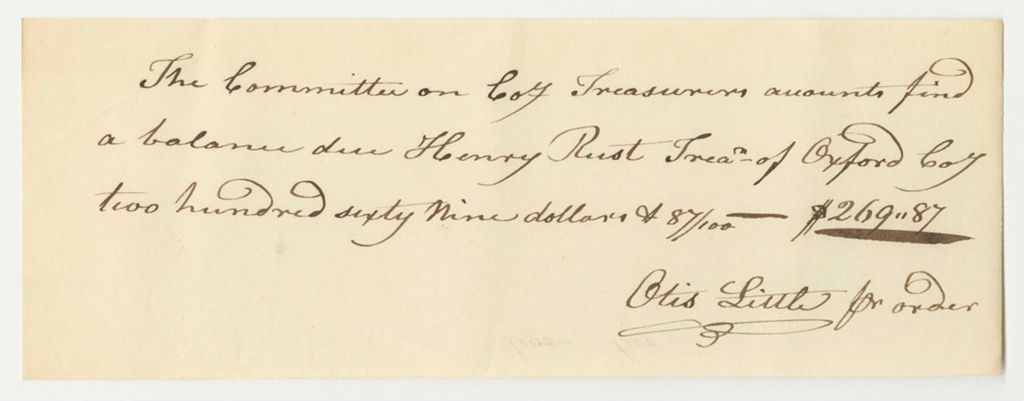 The Committee on Coy Treasurers accounts find
a balance due Henry Rust Trea.n of Oxford Coy
two hundred sixty Nine dollars & 87/100 — $269"87
Otis Little pr order